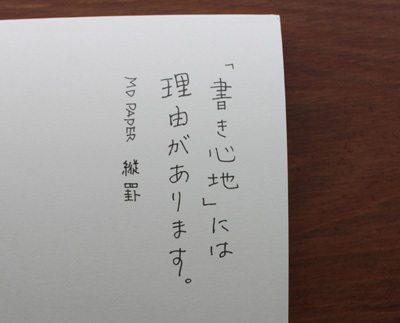 「書き心地」には
理由があります。
MD PAPER 縦罫